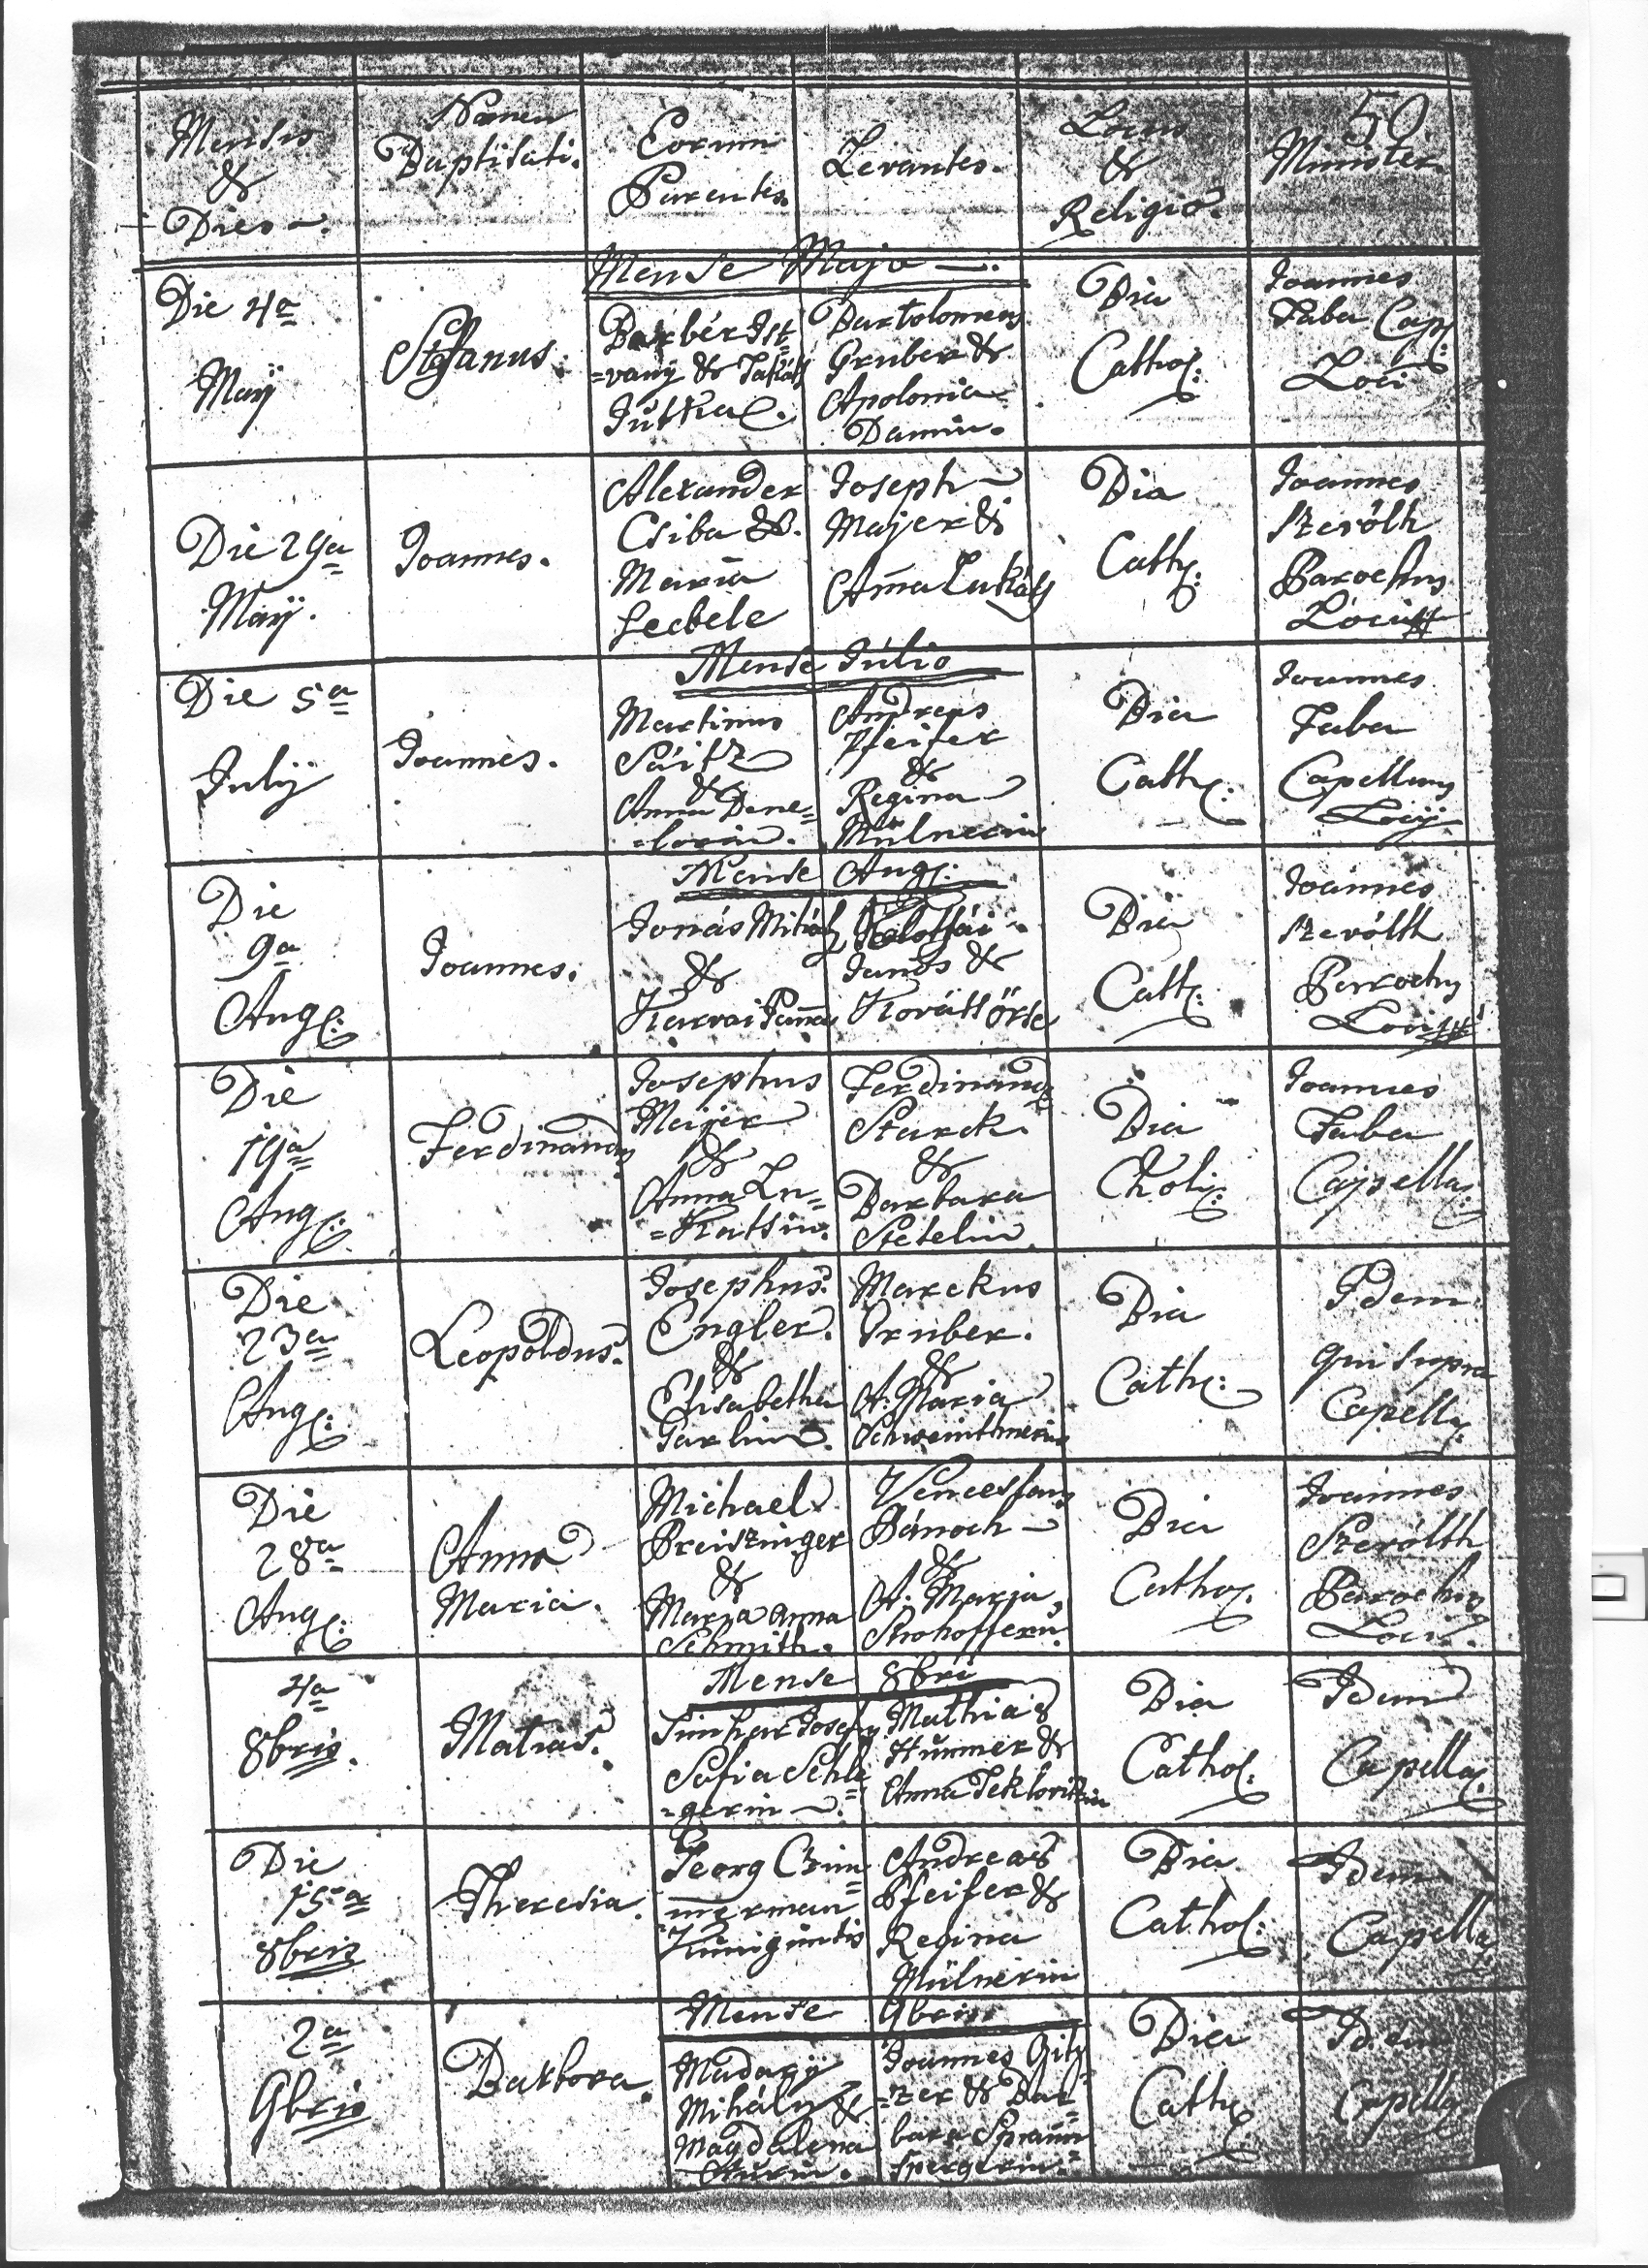 50
Mensis
&
Dies
Nomen
Baptisati.
Eorum
Parentes.
Levantes.
Locus
&
Religio.
Minister.
Mense Majo
Die 4a
Maÿ
Stefanus.
Barbér Ist=
=vany & Takáts
Jutka.
Bartolomeus
Gruber &
Apolonia
Damin.
Bia
Cathol:
Joannes
Faba Cap:
Loci
Die 29a
Maÿ.
Joannes.
Alexander
Csiba &
Maria
Joseph
Majer &
Anna Lukáts
Bia
Cath:
Joannes
Szerólth
Parochus
Loci
Mense Júlio
Die 5a
Julÿ
Joannes.
Martinus
Sáitz
&
Anna Dene=
=lorin.
Andreas
Pfeifer
&
Regina
Mülnerin
Bia
Cath:
Joannes
Faba
Capellanus
Locÿ
Mense Aug:
Die
9a
Aug:
Joannes.
Jonás Mihály
&
Karvai Panna
János &
Kováts Örse
Bia
Cath:
Joannes
Szerólth
Parochus
Loci
Die
19a
Aug:
Ferdinandus
Josephus
Meijer
&
Anna Lu=
=katsin.
Ferdinandus
Starck
&
Barbara
Stetelin.
Bia
Choli:
Joannes
Faba
Capella:
Die
23a
Aug:
Leopoldus.
Josephus.
Engler.
&
Elisabetha
Garlin.
Marckus
Gruber.
&
A: Maria
Schweinthnerin
Bia
Cath:
Idem
qui supra
Capella:
Die
28a
Aug:
Anna
Maria.
Michael
Preiszinger
&
Maria Anna
Schmith.
Venceslaus
Bánoch
&
A: Maria
Strohofferin.
Bia
Cathol.
Joannes
Szerólth
Parochus
Loci.
Mense 8bri
4a
8bris.
Matias.
Simhar Joseph
Sofia Schle=
=gerin
Mathias
Hummer &
Anna Teklovitzin
Bia
Cathol:
Idem
Capella:
Die
15a
8bris
Theresia.
Georg Czim=
merman
Kunigundis
Andreas
Pfeifer &
Regina
Mülnerin
Bia
Cathol:
Idem
Capella
Mense 9bris
2a
9bris
Barbora.
Madarÿ
Mihály &
Magdalena
Joannes Gilt=
=zer & Bar=
bara Spraun=
spergerin.
Bia
Cath:
Idem
Capella